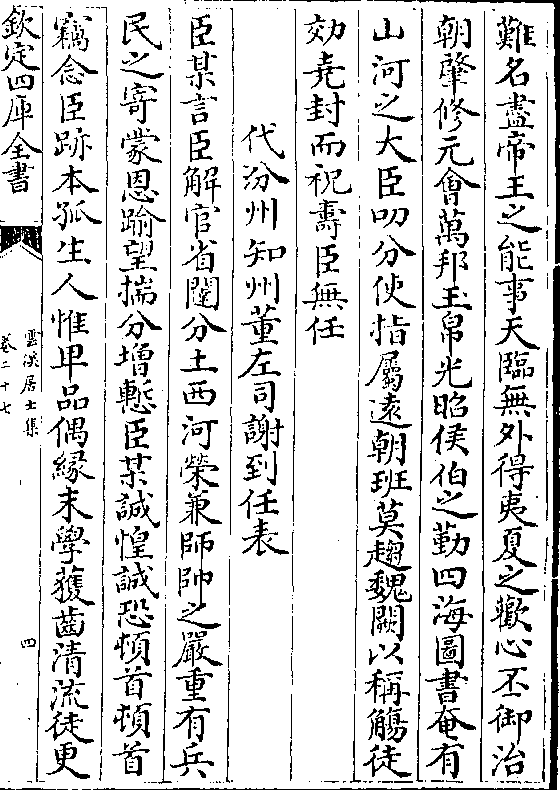 難名盡帝王之能事天臨無外得夷夏之歡心丕御治
朝肇修元會萬邦玉帛光昭侯伯之勤四海圖書奄有
山河之大臣叨分使指屬遠朝班莫趨魏闕以稱觴徒
効堯封而祝壽臣無任
代汾州知州董左司謝到任表
臣某言臣解官省闥分土西河榮兼師帥之嚴重有兵
民之寄蒙恩踰望揣分增慙臣某誠惶誠恐頓首頓首
竊念臣跡本孤生人惟卑品偶緣末學獲齒清流徒更
欽定四庫全書
雲溪居士集
卷二十七
四